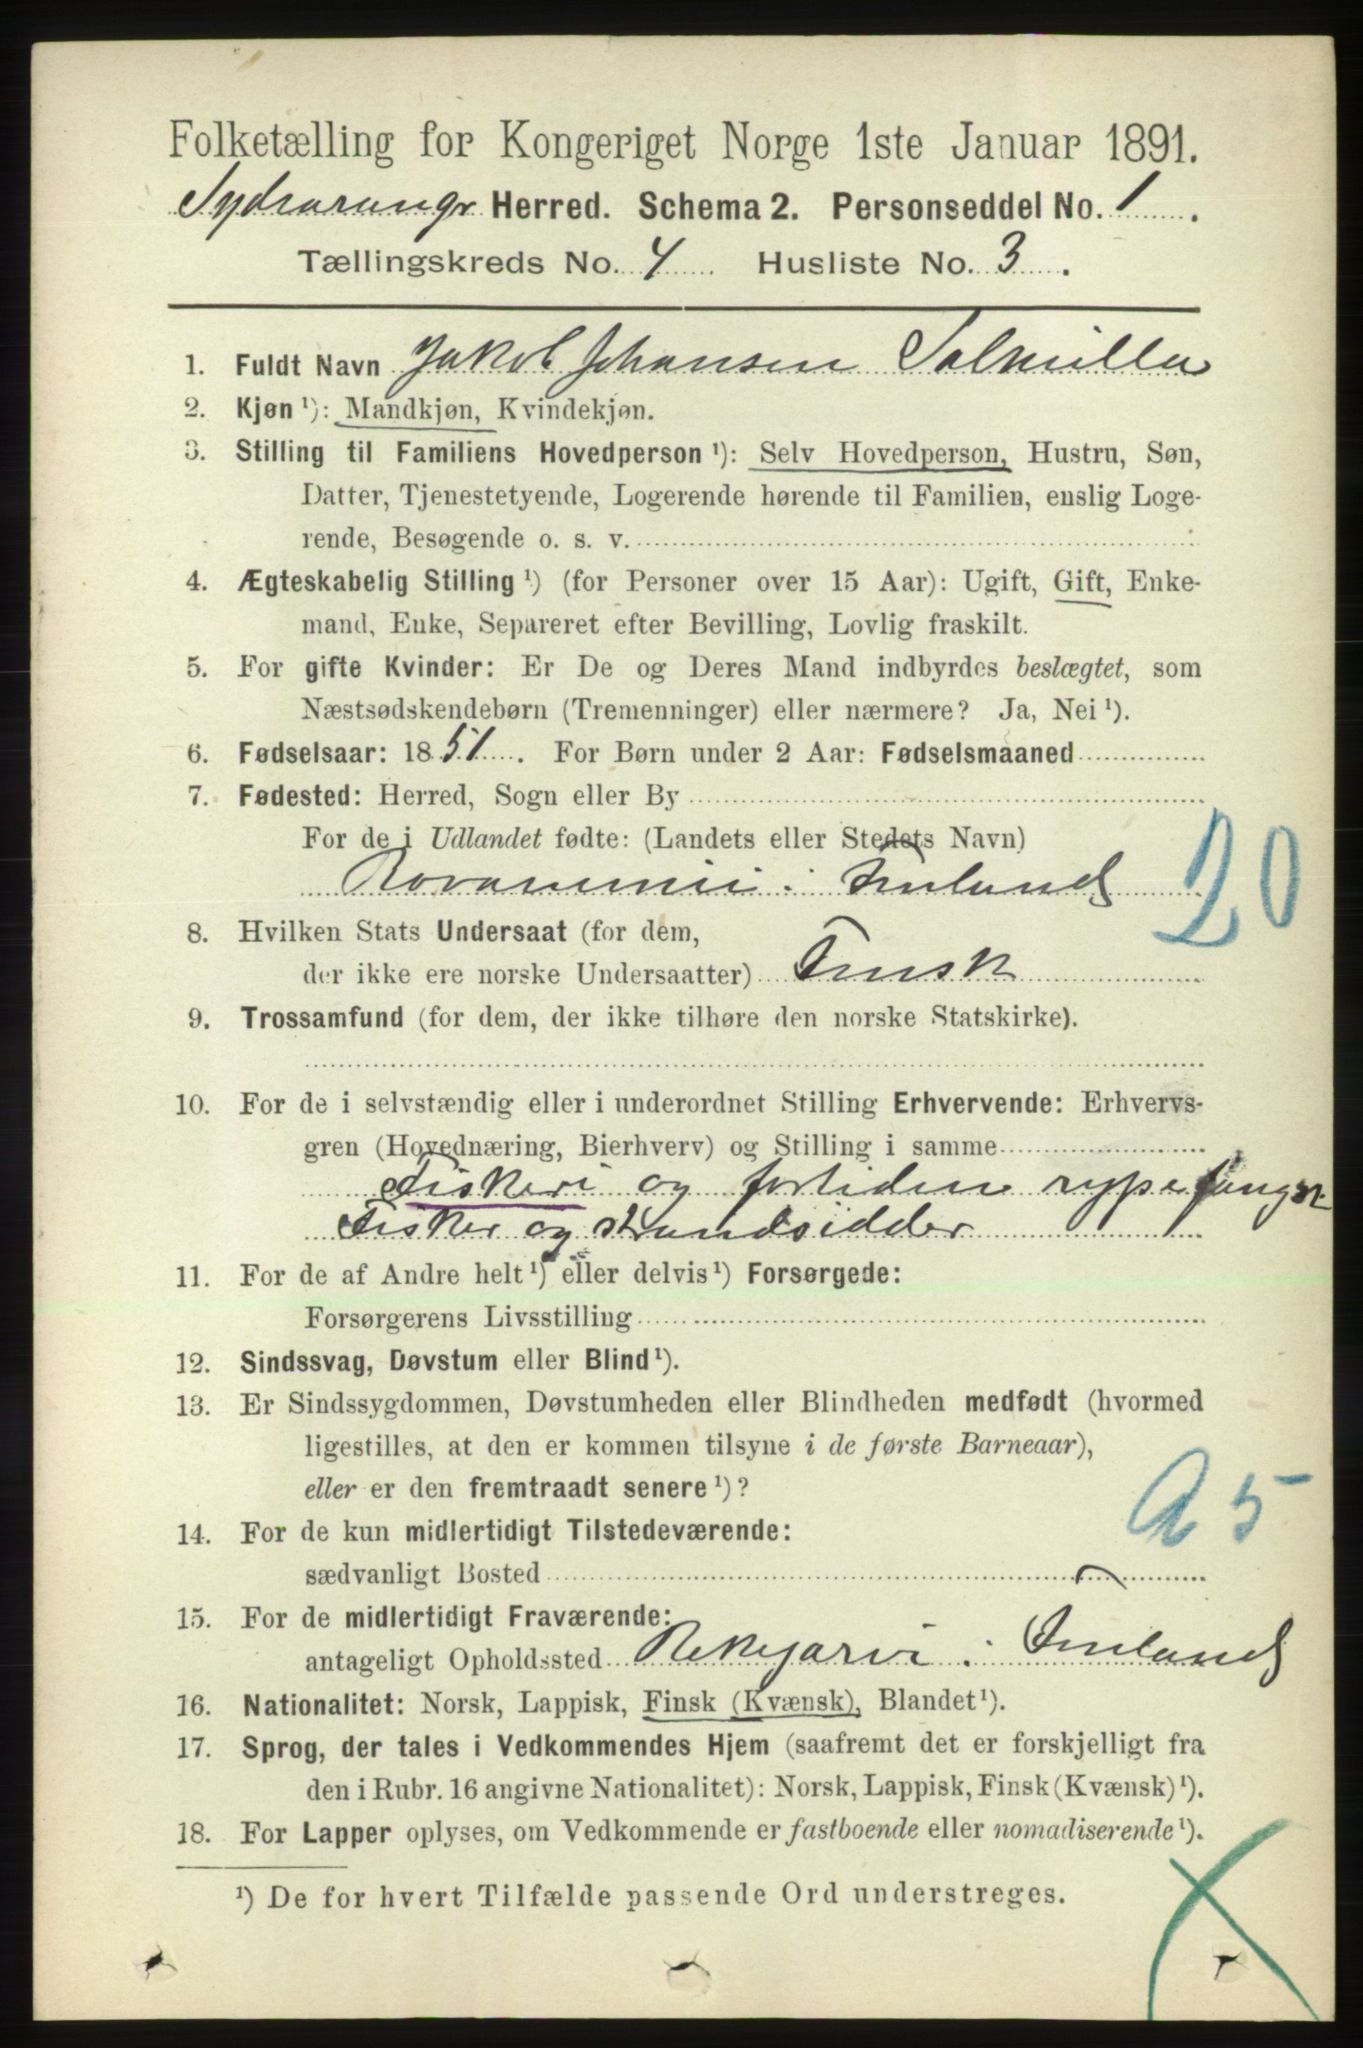 Folketælling for Kongeriget Norge 1ste Januar 1891.
Sydvaranger Herred. Schema 2. Personseddel No. 1.
Tællingskreds No. 4 Husliste No. 3.
1. Fuldt Navn Jakob Johansen
2. Kjøn ¹): Mandkjøn, Kvindekjøn.
3. Stilling til Familiens Hovedperson ¹): Selv Hovedperson, Hustru, Søn,
Datter, Tjenestetyende, Logerende hørende til Familien, enslig Loge-
rende, Besøgende o. s. v.
4. Ægteskabelig Stilling ¹) (for Personer over 15 Aar): Ugift, Gift, Enke-
mand, Enke, Separeret efter Bevilling, Lovlig fraskilt.
5. For gifte Kvinder: Er De og Deres Mand indbyrdes beslægtet, som
Næstsødskendebørn (Tremenninger) eller nærmere? Ja, Nei ¹).
6. Fødselsaar: 1851. For Børn under 2 Aar: Fødselsmaaned
7. Fødested: Herred, Sogn eller By
For de i Udlandet fødte: (Landets eller Stedets Navn)
i Finland
20
8. Hvilken Stats Undersaat (for dem,
der ikke ere norske Undersaatter) Finsk
9. Trossamfund (for dem, der ikke tilhøre den norske Statskirke).
10. For de i selvstændig eller i underordnet Stilling Erhvervende: Erhvervs-
gren (Hovednæring, Bierhverv) og Stilling i samme
Fiskeri og fortiden rypefangst
Fisker og strandsidder
11. For de af Andre helt ¹) eller delvis ¹) Forsørgede:
Forsørgerens Livsstilling
12. Sindssvag, Døvstum eller Blind ¹).
13. Er Sindssygdommen, Døvstumheden eller Blindheden medfødt (hvormed
ligestilles, at den er kommen tilsyne i de første Barneaar),
eller er den fremtraadt senere ¹)?
14. For de kun midlertidigt Tilstedeværende:
sædvanligt Bosted
15. For de midlertidigt Fraværende:
antageligt Opholdssted i Finland
16. Nationalitet: Norsk, Lappisk, Finsk (Kvænsk), Blandet ¹).
17. Sprog, der tales i Vedkommendes Hjem (saafremt det er forskjelligt fra
den i Rubr. 16 angivne Nationalitet): Norsk, Lappisk, Finsk (Kvænsk) ¹).
18. For Lapper oplyses, om Vedkommende er fastboende eller nomadiserende ¹).
¹) De for hvert Tilfælde passende Ord understreges.